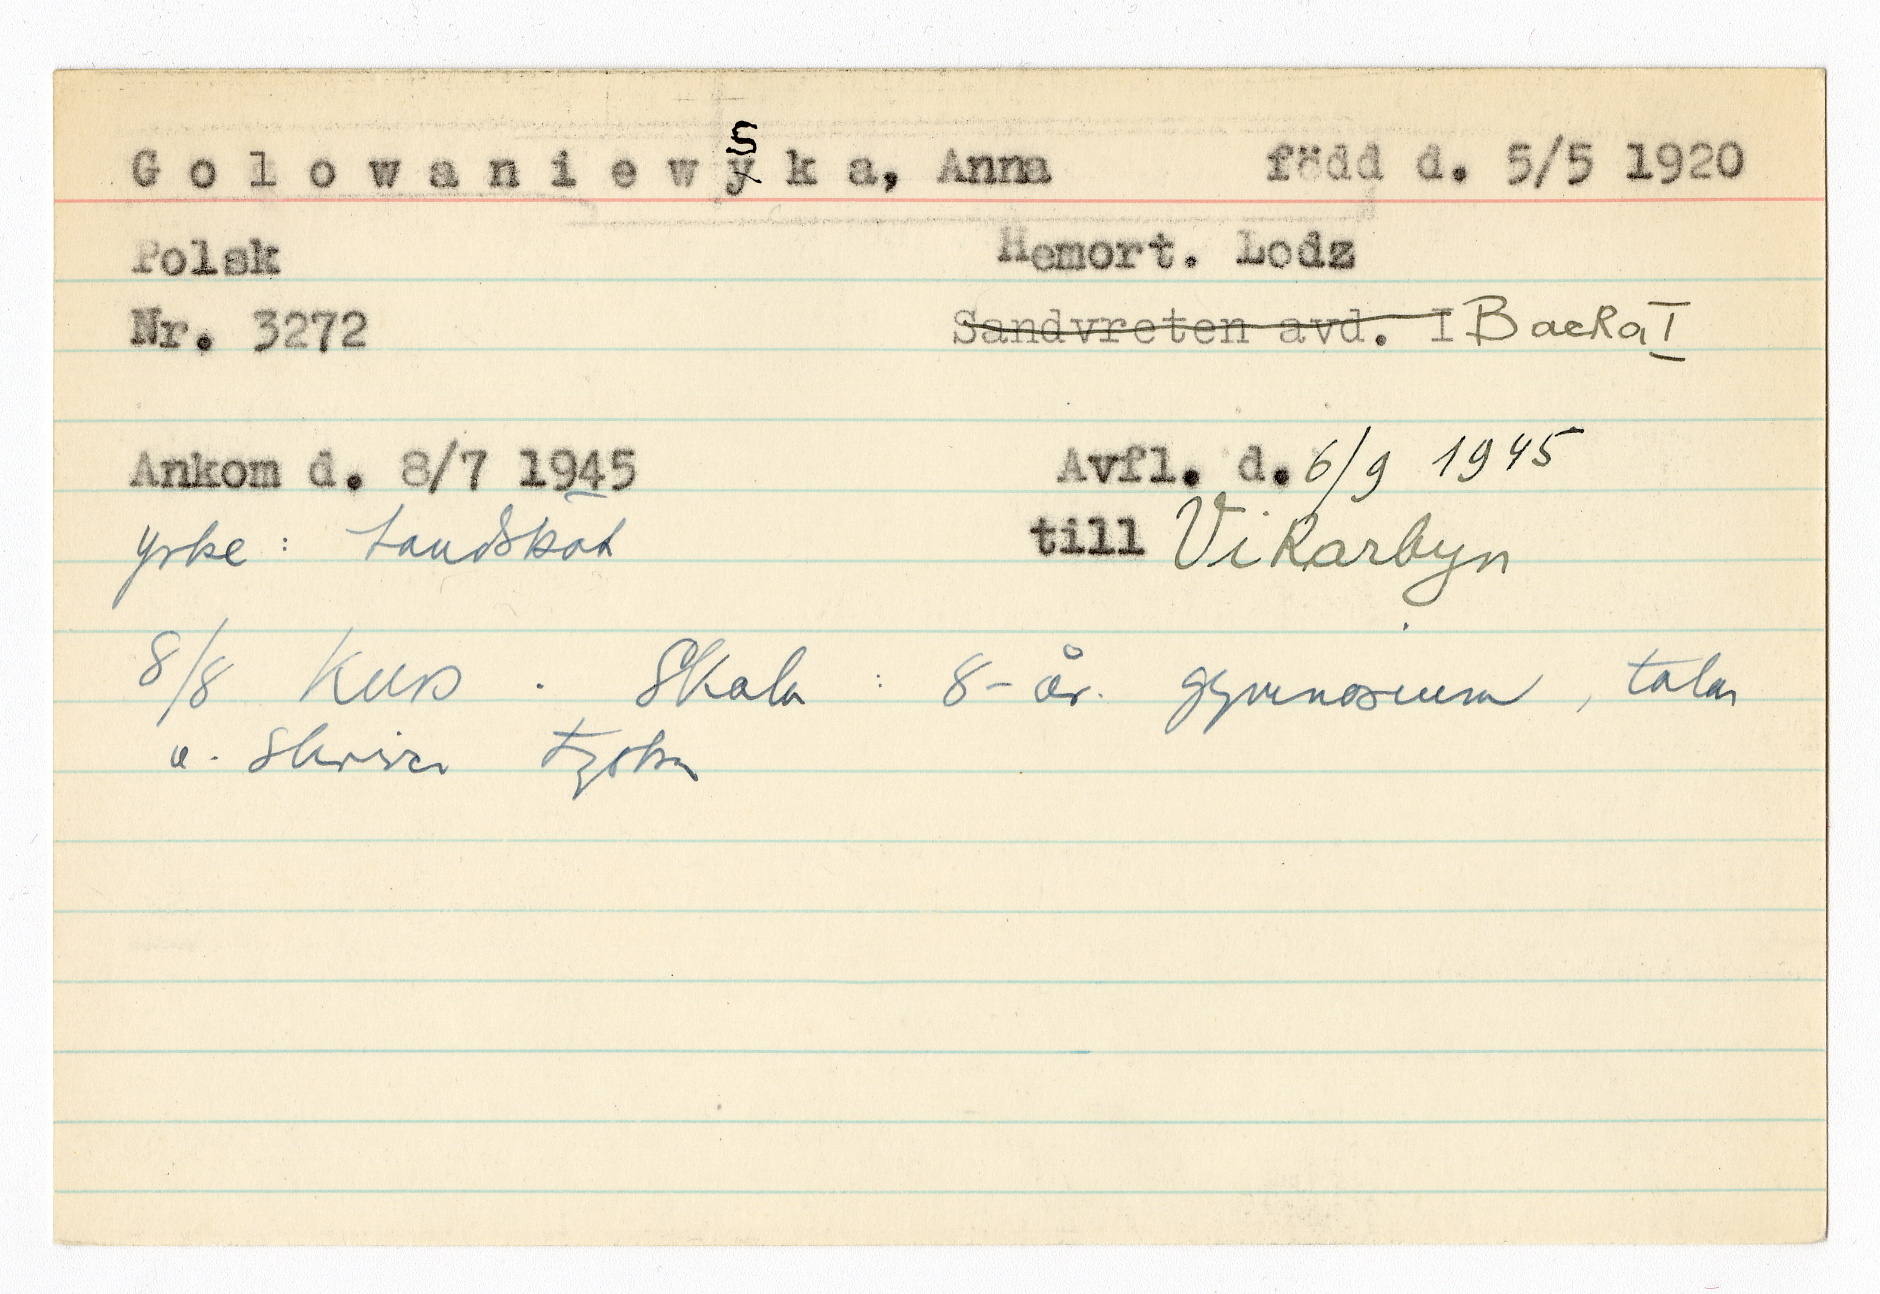 Golowaniewska, Anna född d. 5/5 1920
Polsk Hemort. Lodz
Nr. 3272 Sandvreten avd. I Backa I
Ankom d. 8/7 1945 Avfl. d. 6/9 1945
yrke: till Vikarbyn
8/8 Skola: 8-år. gymnasium, talar
o. skriver tyska